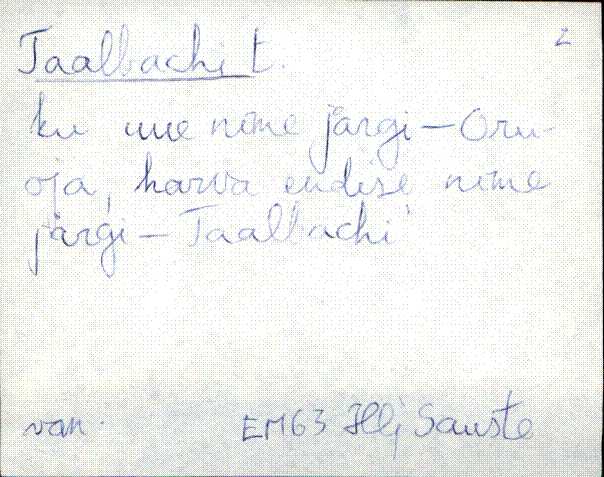 2
Taalbachi t.
ku uue nime järgi – Oru-
oja, harva endise nime
järgi – Taalbachi
van.
EM63 Hlj Sauste